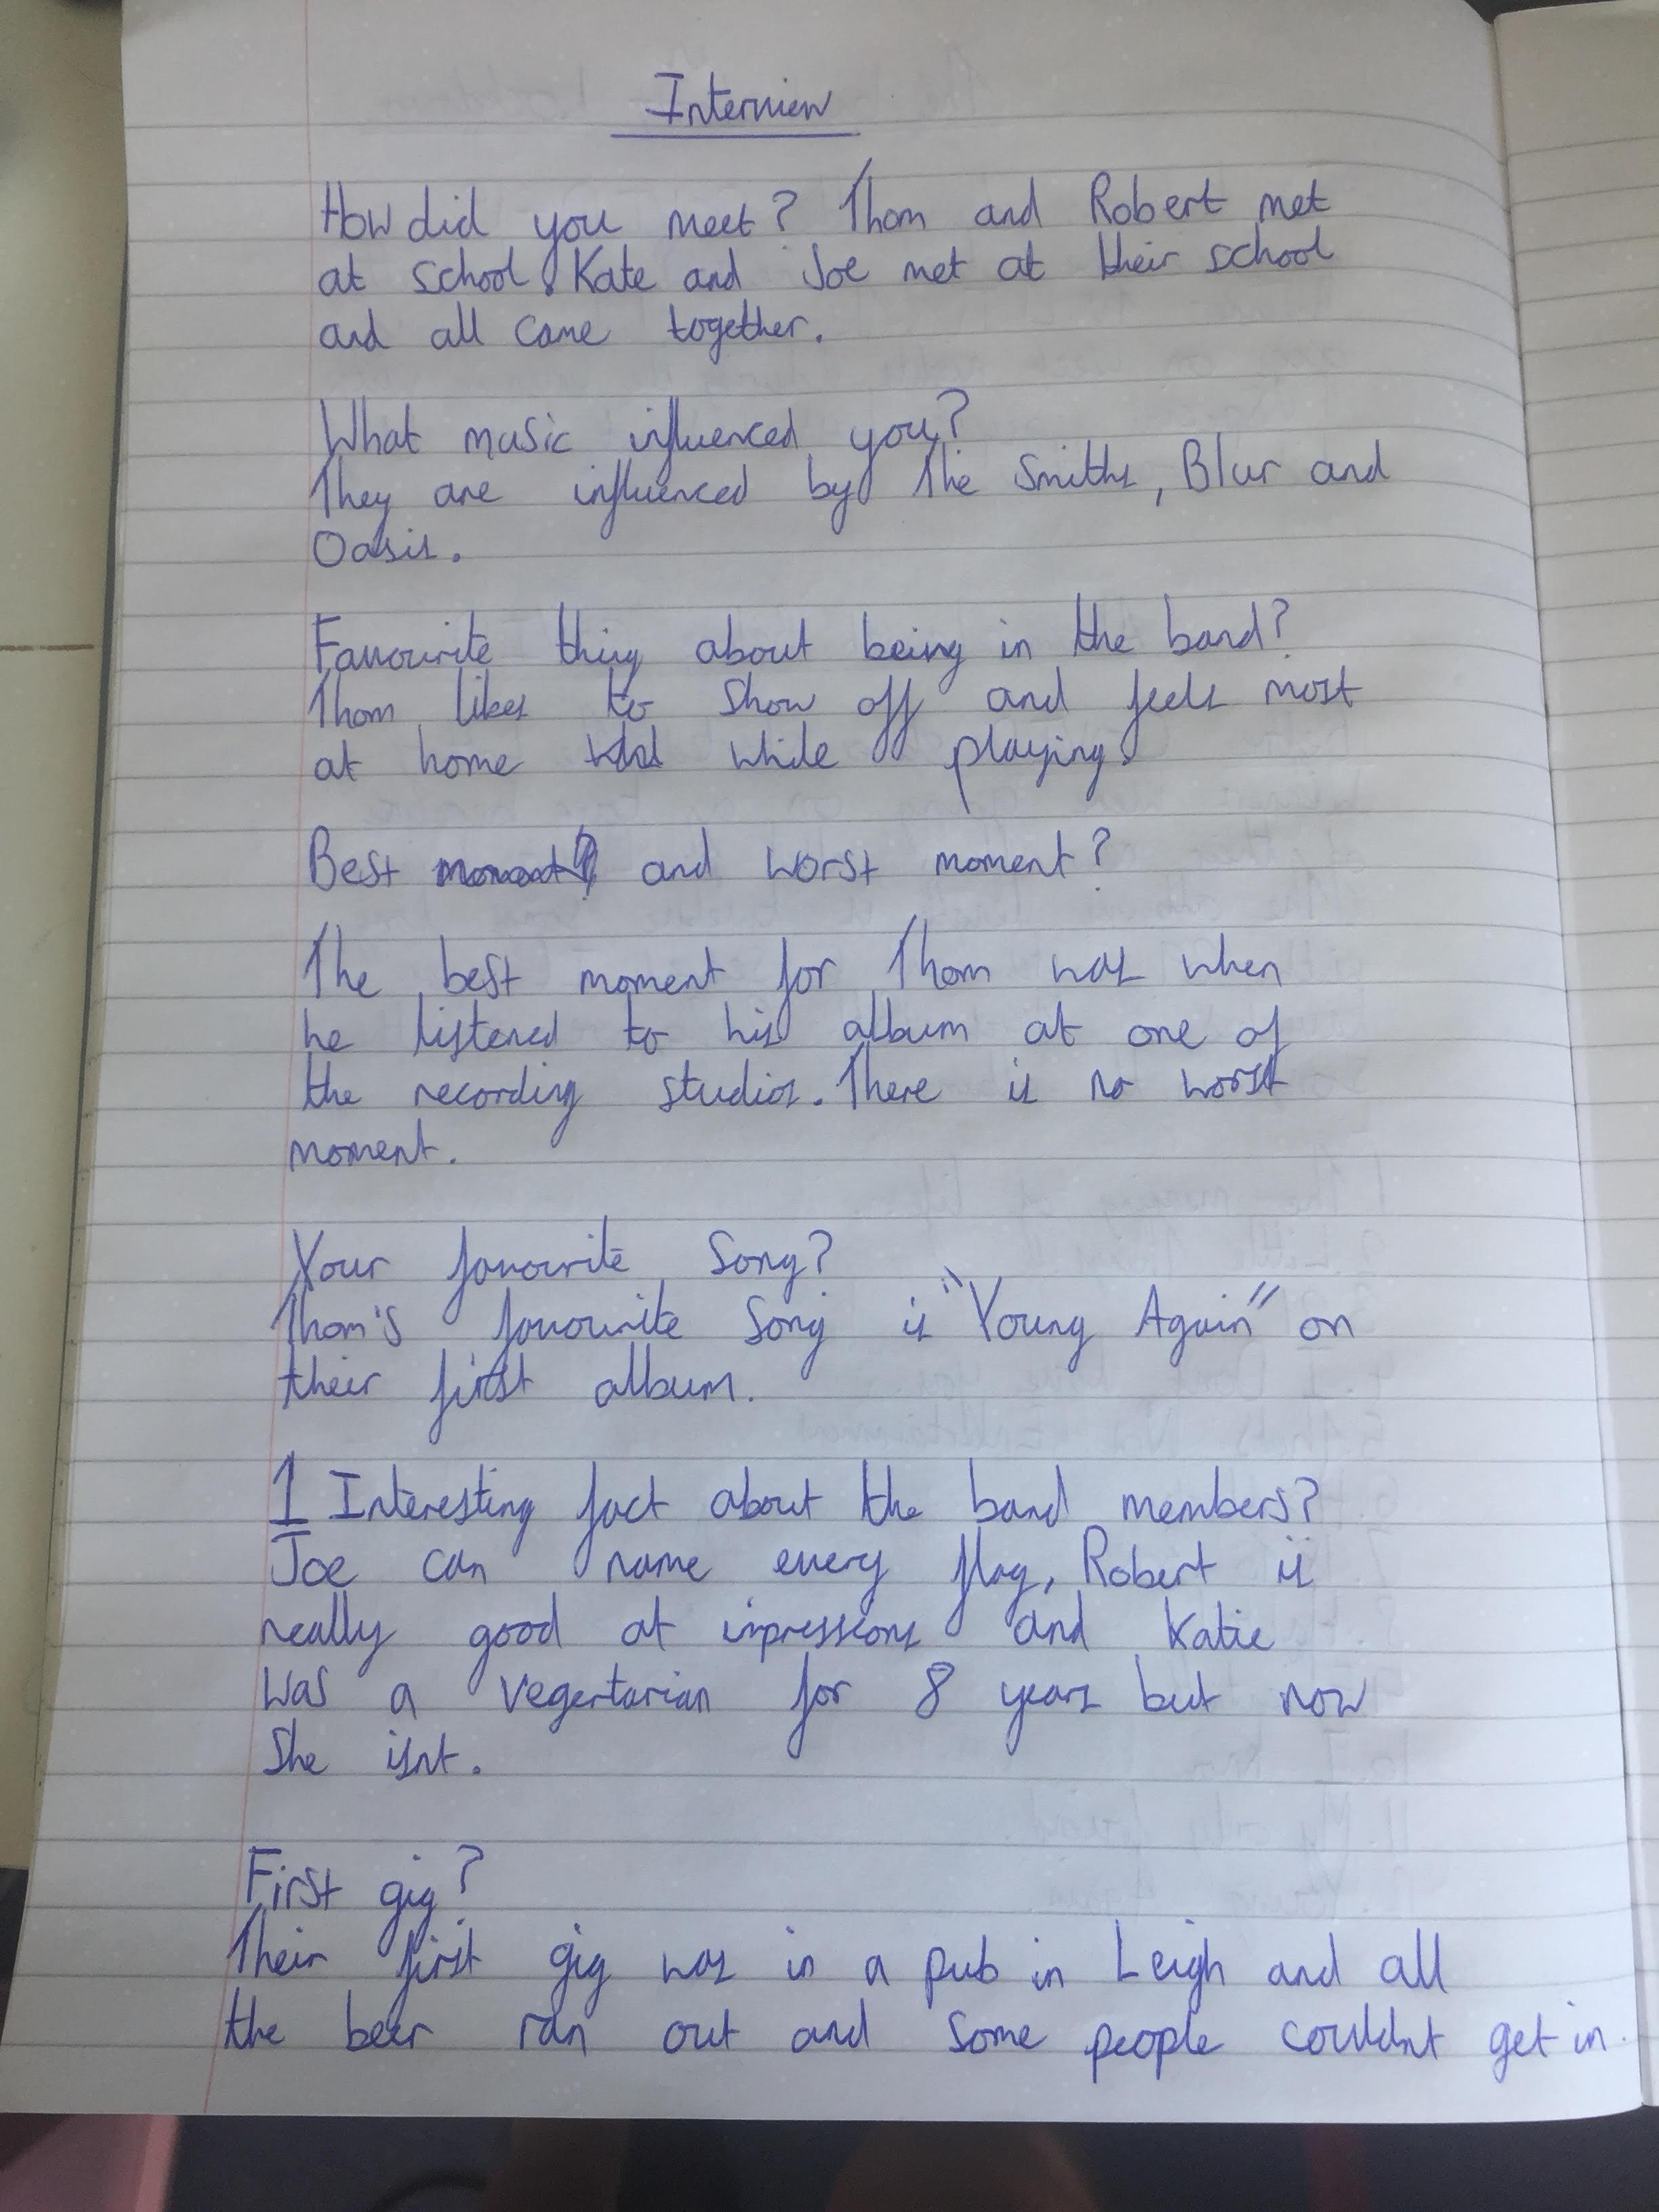 Interview
How did you meet? Thom and Robert met
at school. Kate and Joe met at their school
and all came together.
What music influenced you?
They are influenced by The Smiths, Blur and
Oasis.
Favourite thing about being in the band?
Thom likes to show off and feels most
at home while playing.
Best moment? and worst moment?
The best moment for Thom was when
he listened to his album at one of
the recording studios. There is no worst
moment.
Your favourite song?
Thom's favourite song is "Young Again" on
their first album.
1 Interesting fact about the band members?
Joe can name every flag, Robert is
really good at inpressions and Katie
was a vegertarian for 8 years but now
she isnt.
First gig?
Their first gig was in a pub in Leigh and all
the beer ran out and some people couldnt get in.